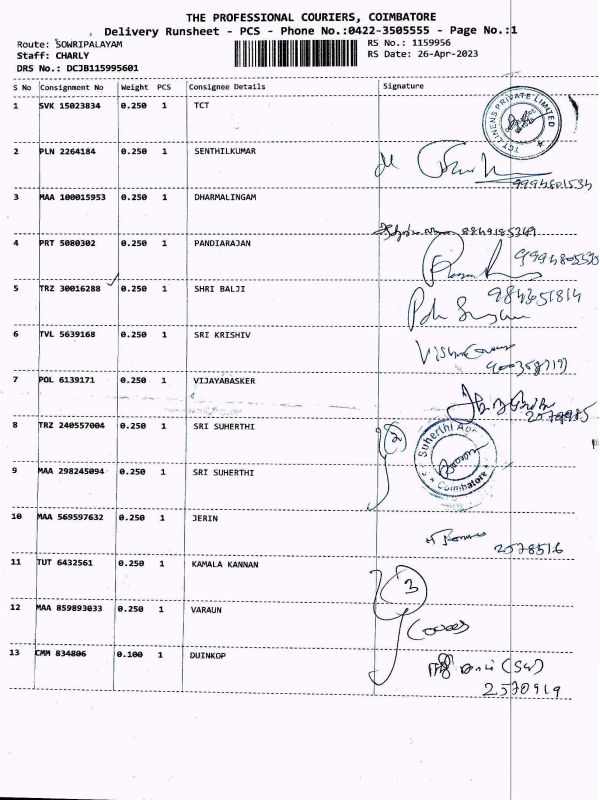 THE PROFESSIONAL COURIERS, COIMBATORE
Delivery Runsheet - PCS - Phone No.:0422-3505555 - Page No.:1
Route: SOWRIPALAYAM RS No.: 1159956
Staff: CHARLY RS Date: 26-Apr-2023
DRS No.: DCJB115995601
S No Consignment No Weight PCS Consignee Details Signature
1 SVK 15023834 0.250 1 TCT
TCT LINENS PRIVATE LIMITED
2 PLN 2264184 0.250 1 SENTHILKUMAR
9994801534
3 MAA 100015953 0.250 1 DHARMALINGAM
4 PRT 5080302 0.250 1 PANDIARAJAN
5 TRZ 30016288 0.250 1 SHRI BALJI
984351814
6 TVL 5639168 0.250 1 SRI KRISHIV
7 POL 6139171 0.250 1 VIJAYABASKER
8 TRZ 240557004 0.250 1 SRI SUHERTHI
2
Suherthi
Coimbatore
9 MAA 298245094 0.250 1 SRI SUHERTHI
10 MAA 569597632 0.250 1 JERIN
2578516
11 TUT 6432561 0.250 1 KAMALA KANNAN
3
12 MAA 859893033 0.250 1 VARAUN
13 CMM 834806 0.100 1 DUINKOP
2570919